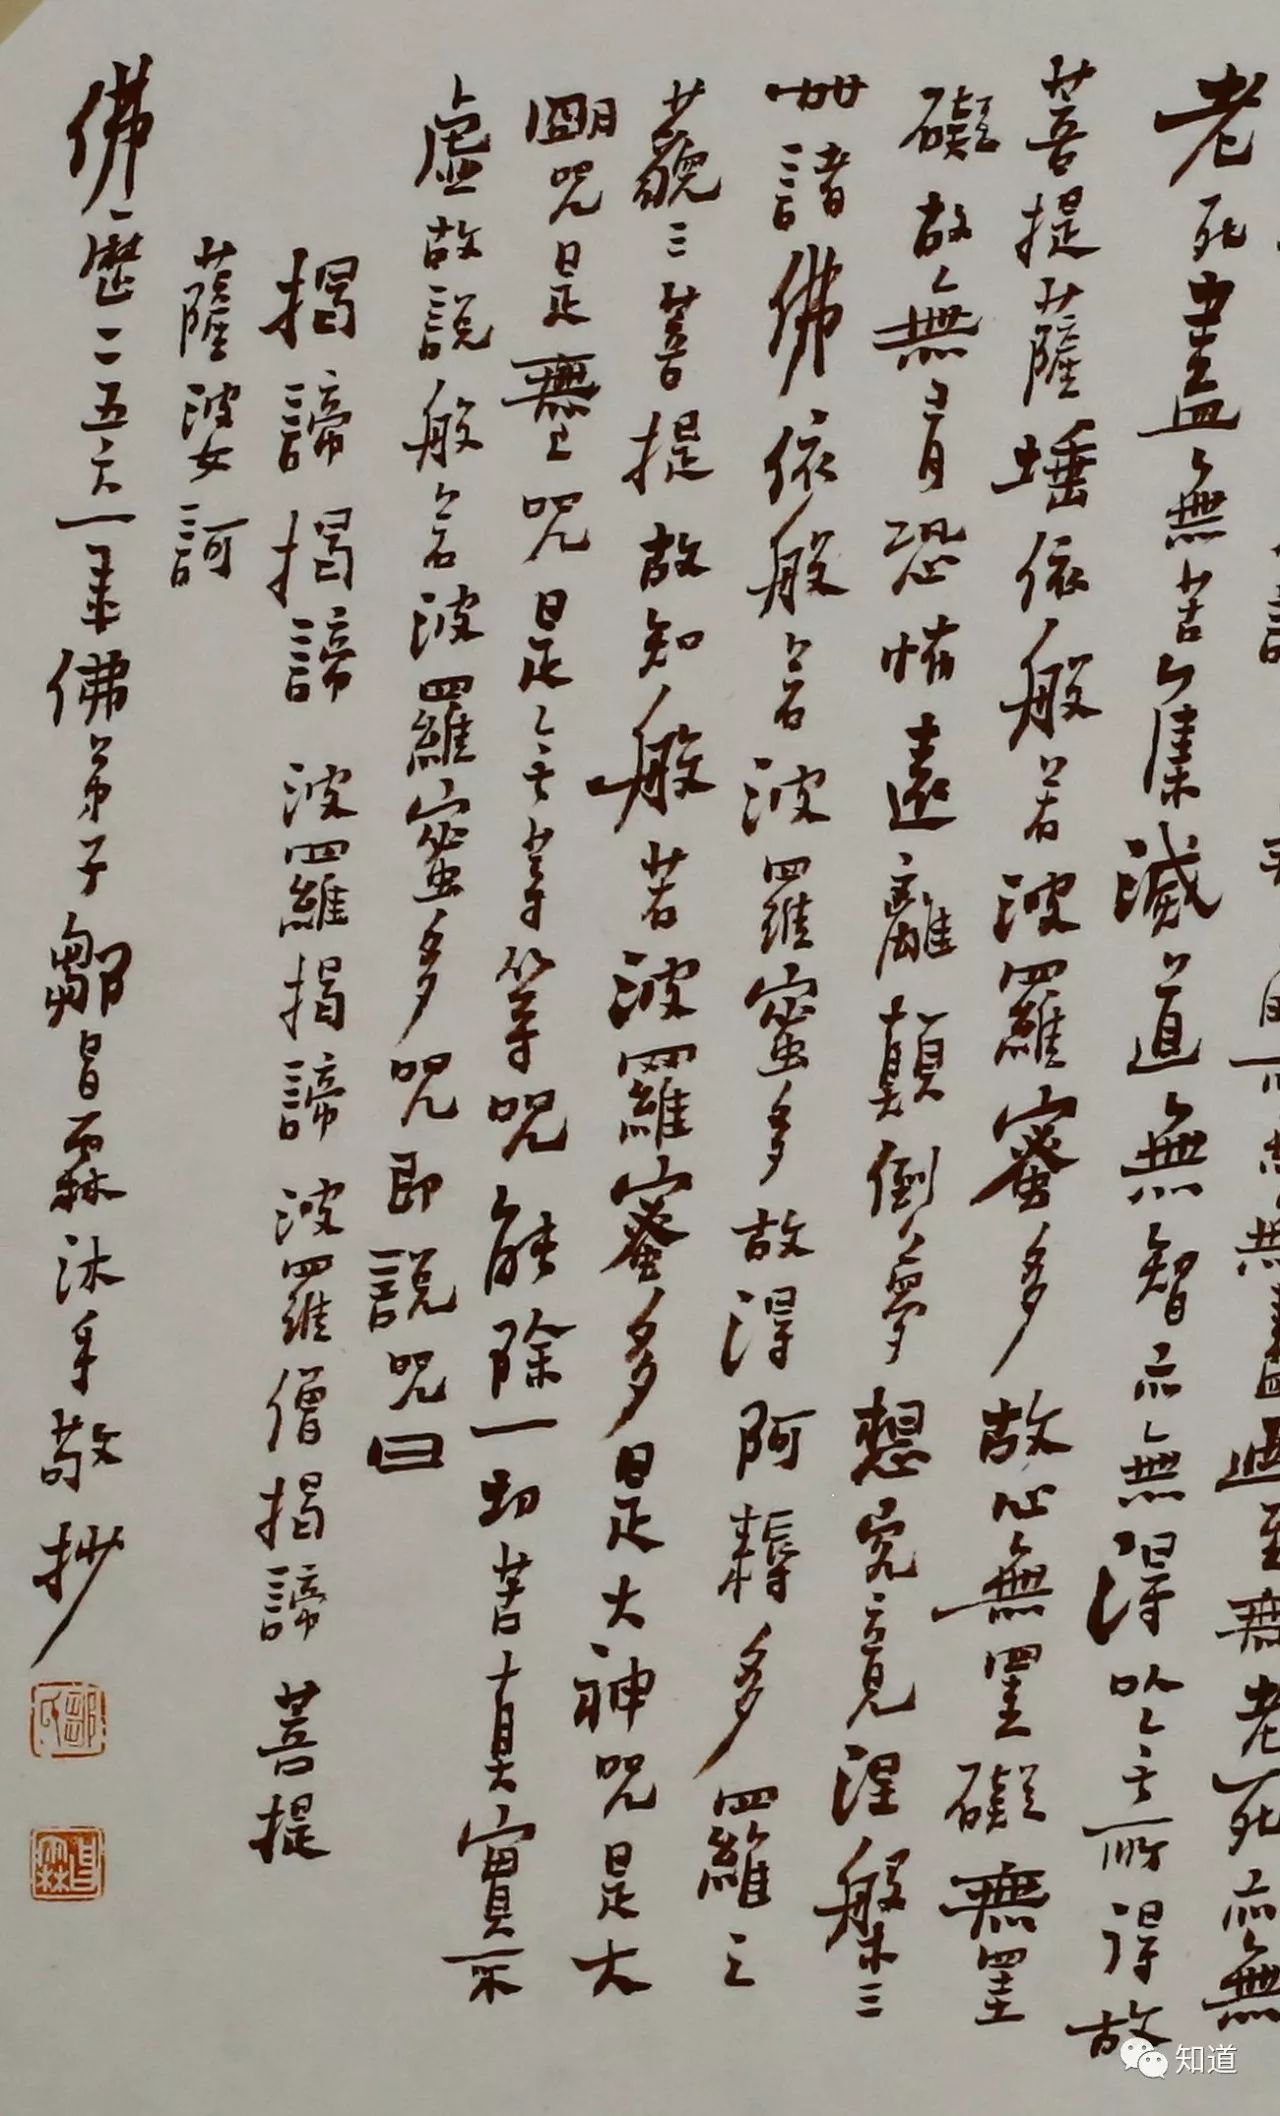 無明盡迺至無老死亦無
老死盡無苦集滅道無智亦無得以无所得故
菩提薩埵依般若波羅蜜多故心無罣礙無罣
礙故無有恐怖遠離顛倒夢想究竟涅槃三
世諸佛依般若波羅蜜多故得阿耨多羅三
藐三菩提故知般若波羅蜜多是大神咒是大
明咒是無上咒是无等等咒能除一切苦真實不
虛故說般若波羅蜜多咒即說咒曰
揭諦揭諦波羅揭諦波羅僧揭諦菩提
薩婆訶
佛歷二五六一年佛弟子鄒昌霖沐手敬抄
鄒氏
昌霖
知道